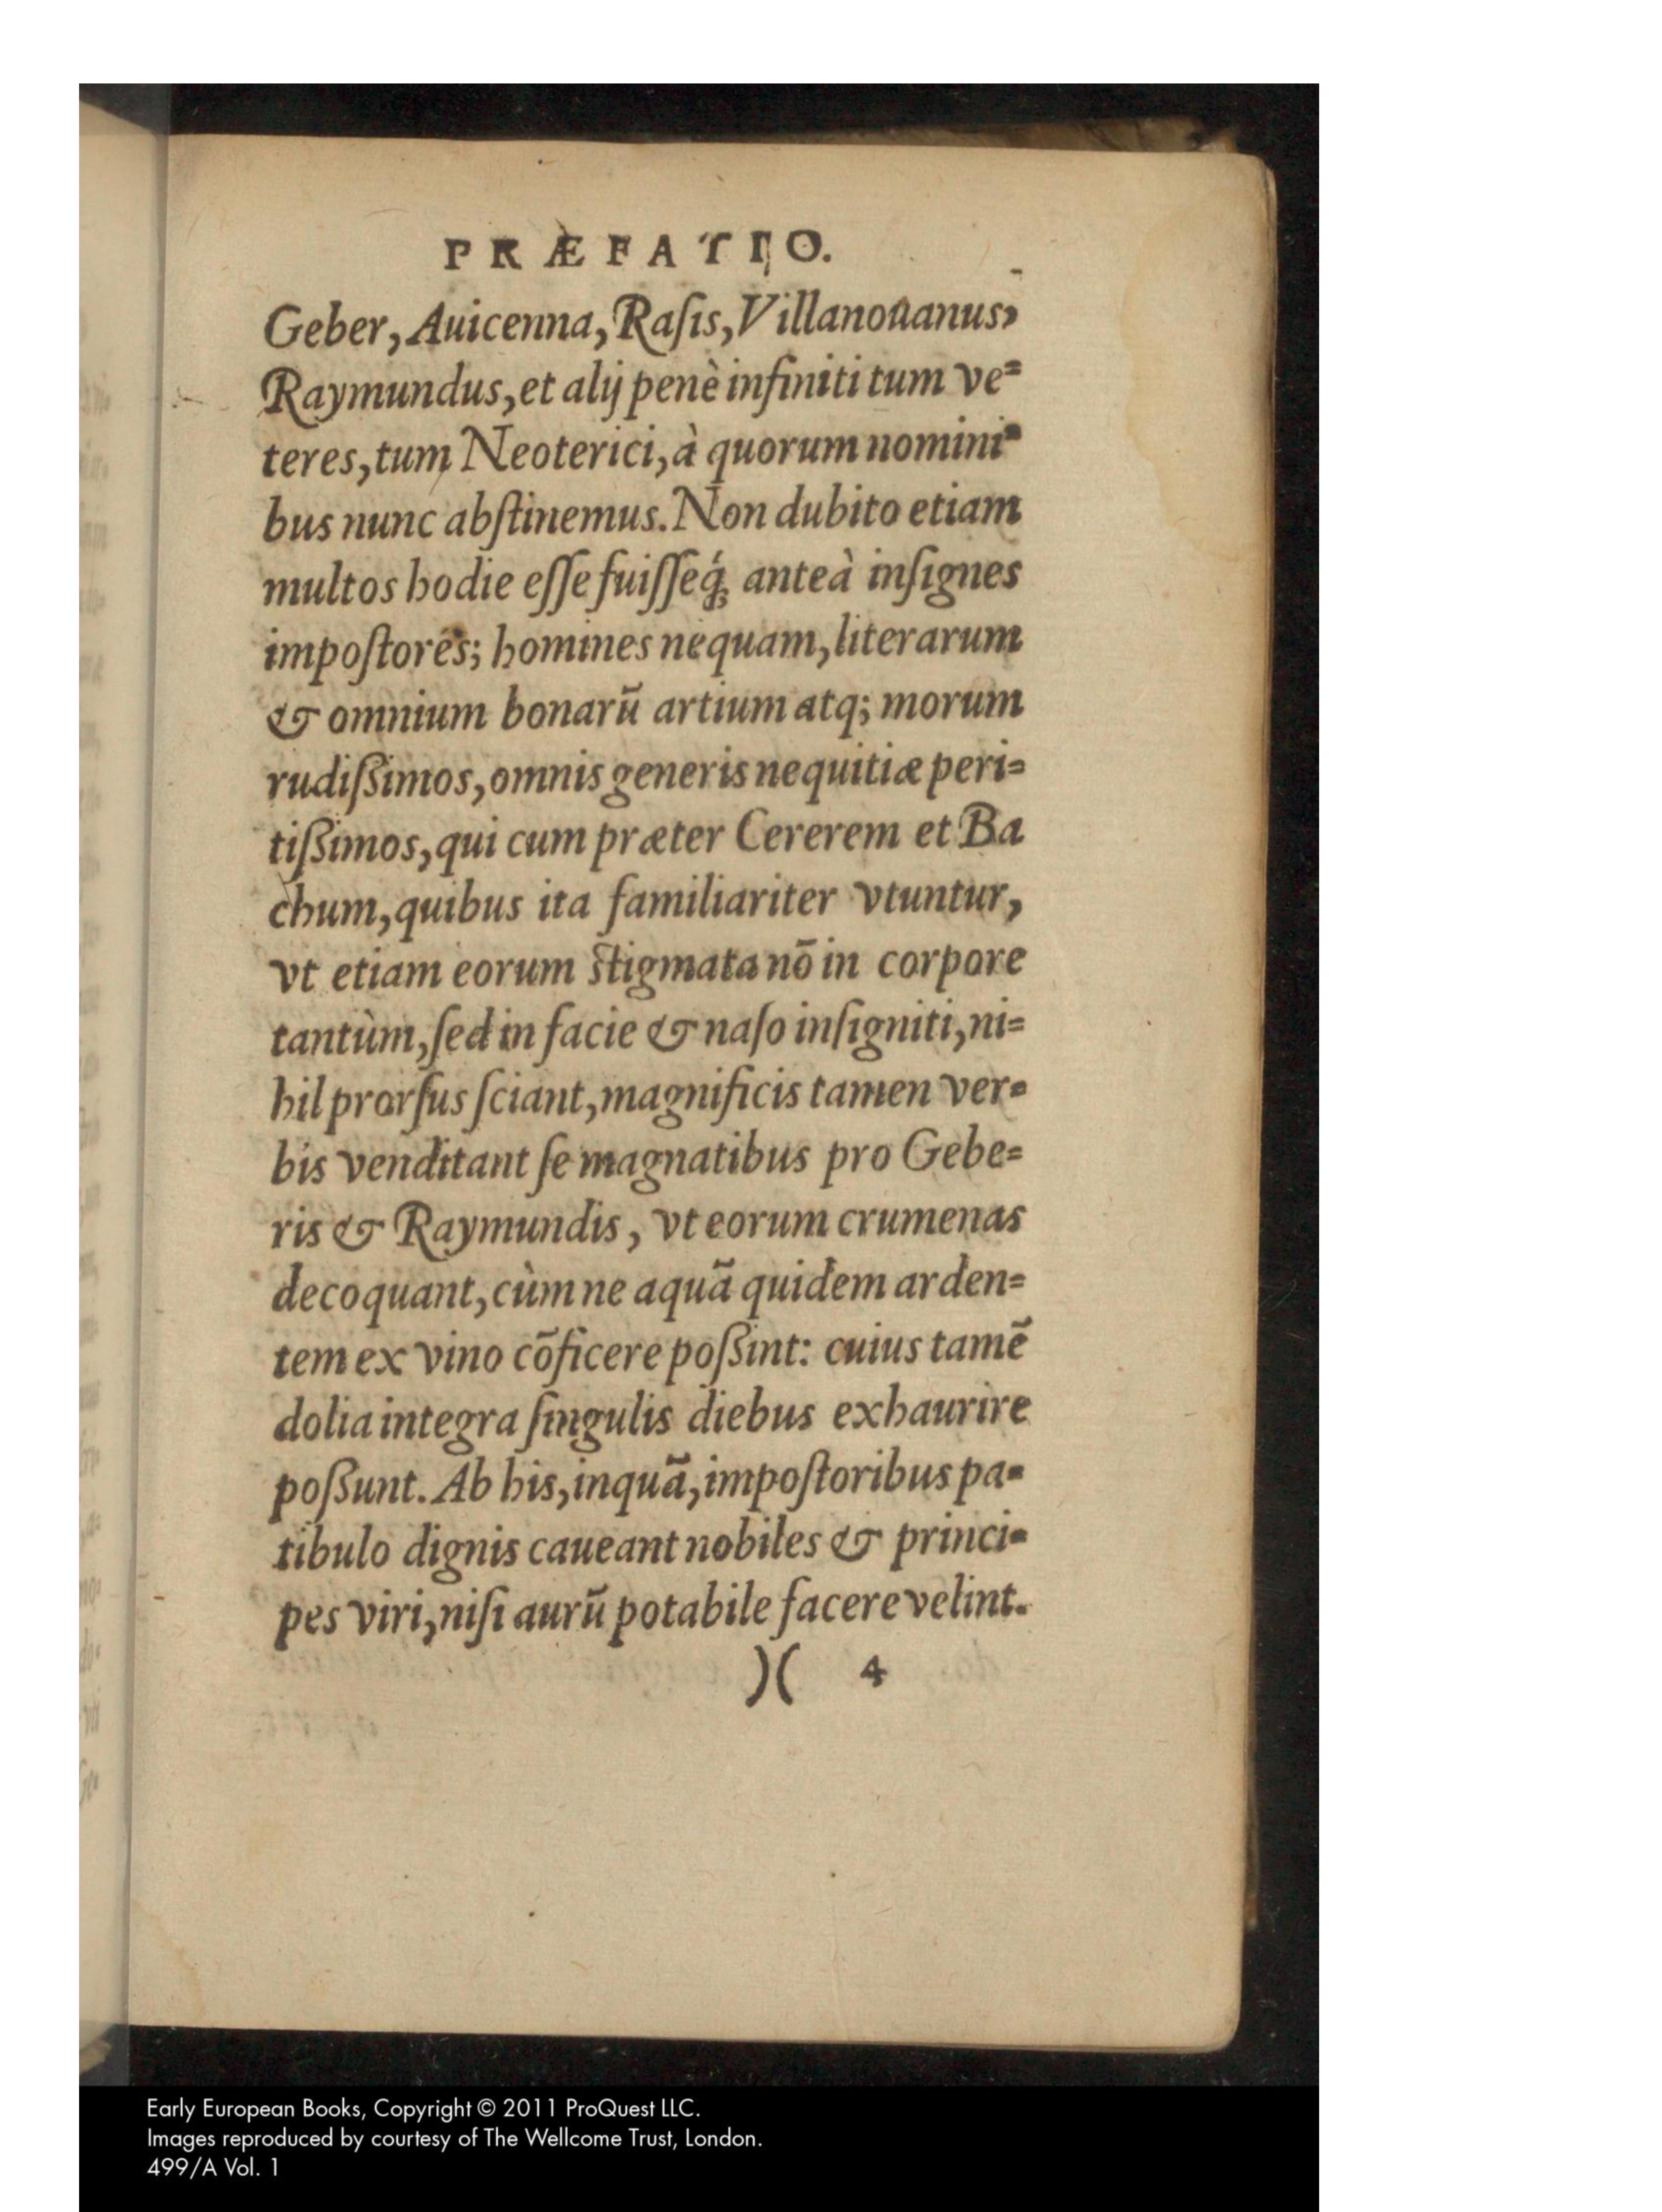 PRÆFATIO.
Geber, Auicenna, Raſis, Villanouanus,
Raymundus, et alij penè infiniti tum ve=
teres, tum Neoterici, à quorum nomini=
bus nunc abſtinemus. Non dubito etiam
multos hodie eſſe fuiſſeq́; anteà inſignes
impoſtores; homines nequam, literarum
& omnium bonarũ artium atq; morum
rudiſſimos, omnis generis nequitiæ peri=
tiſſimos, qui cum præter Cererem et Ba
chum, quibus ita familiariter vtuntur,
vt etiam eorum ſtigmata nõ in corpore
tantùm, ſed in facie & naſo inſigniti, ni=
hil prorſus ſciant, magnificis tamen ver=
bis venditant ſe magnatibus pro Gebe=
ris & Raymundis, vt eorum crumenas
decoquant, cùm ne aquã quidem arden=
tem ex vino cõficere poſſint: cuius tamẽ
dolia integra ſingulis diebus exhaurire
poſſunt. Ab his, inquã, impoſtoribus pa=
tibulo dignis caueant nobiles & princi=
pes viri, niſi aurũ potabile facere velint.
)( 4
Early European Books, Copyright © 2011 ProQuest LLC.
Images reproduced by courtesy of The Wellcome Trust, London.
499/A Vol. 1